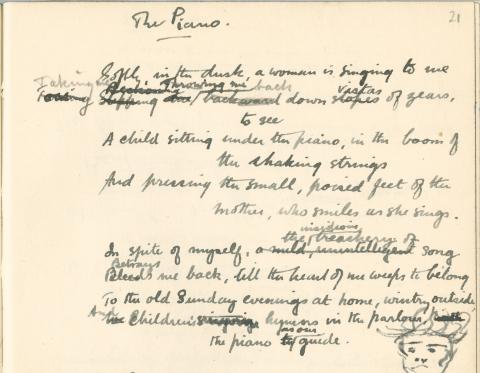 The Piano.
21
Softly, in the dusk, a woman is singing to me
Taking me back down vistas of years,
to see
A child sitting under the piano, in the boom of
the shaking strings
And pressing the small, poised feet of the
mother, who smiles as she sings.
insidious
In spite of myself, the treachery of song
Betrays me back, till the heart of me weeps to belong
To the old Sunday evenings at home, wintry outside
And hymns in the parlour,
the piano our guide.